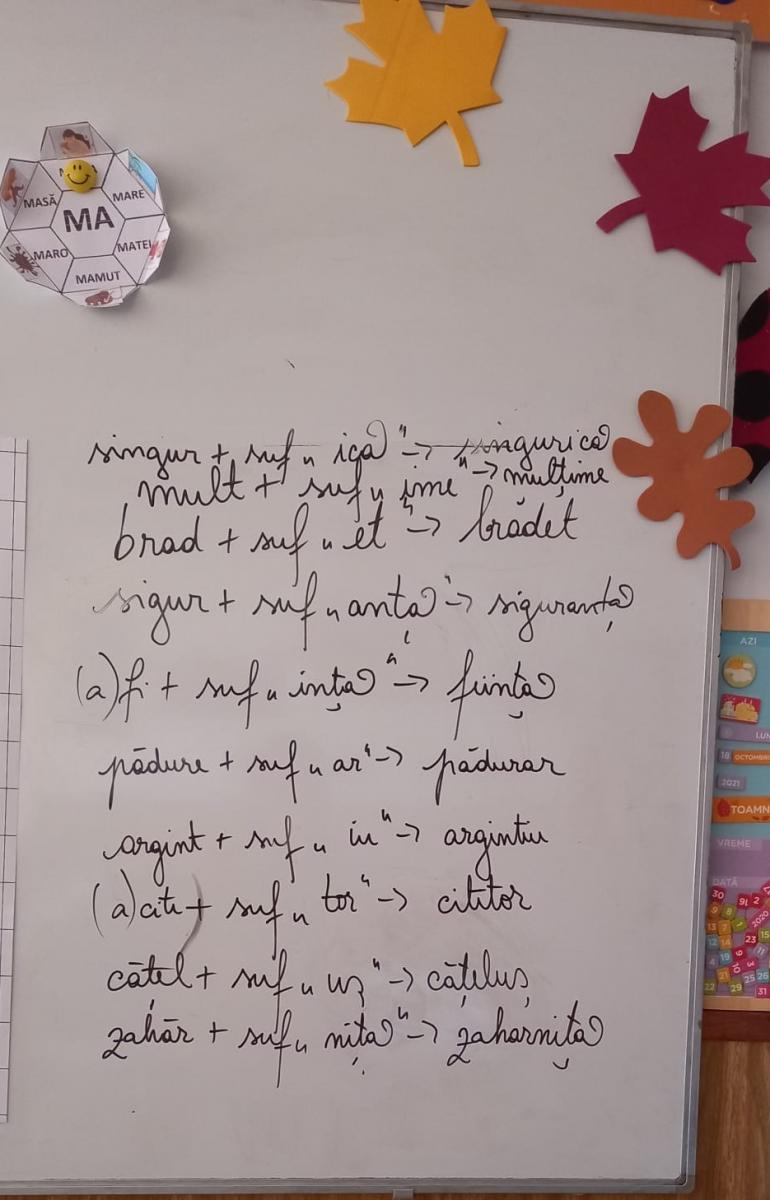 MASĂ
MARE
MA
MARO
MATEI
MAMUT
singur + suf „ică" -> singurică
mult + suf „ime" -> mulțime
brad + suf „et" -> brădet
sigur + suf „anță" -> siguranță
(a) fi + suf „ință" -> ființă
pădure + suf „ar" -> pădurar
argint + suf „iu" -> argintiu
(a) citi + suf „tor" -> cititor
cățel + suf „uș" -> cățeluș
zahăr + suf „niță" -> zaharniță
AZI
LUN
18 OCTOMBRI
2021
TOAMN
VREME
DATĂ